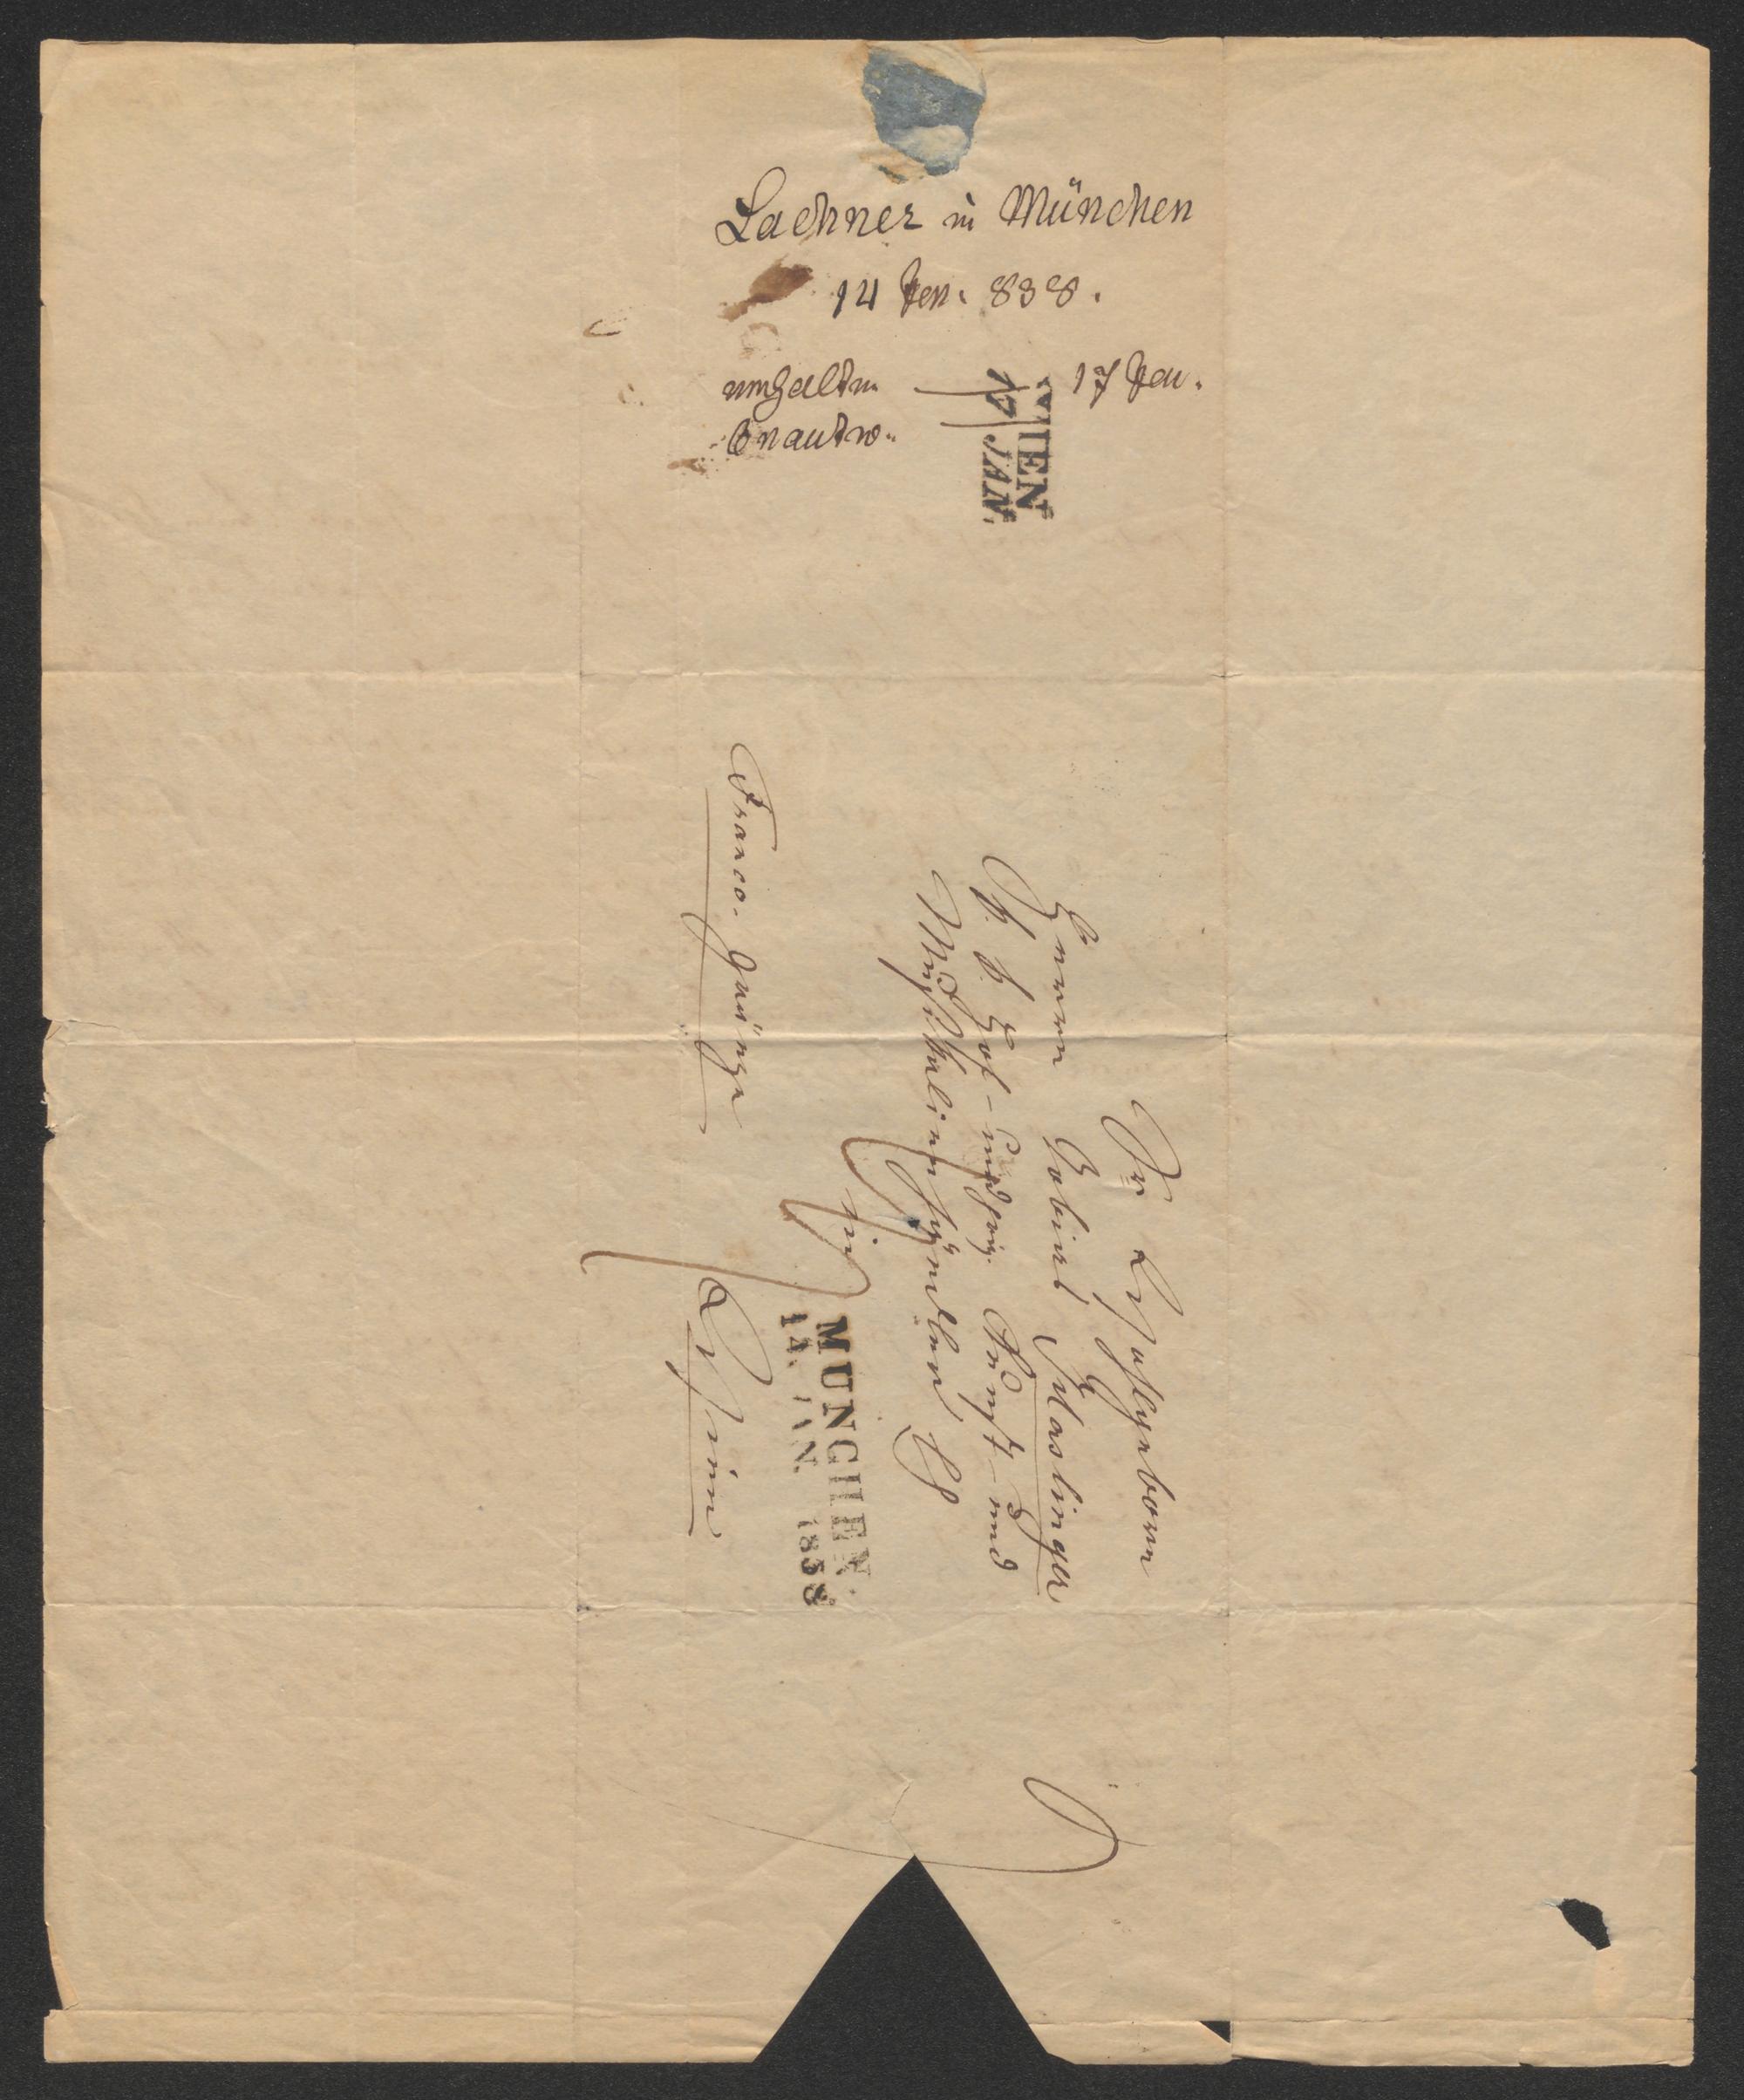 Lachner in München
14 Jen. 838.
erhalten 17 Jen.
beantw.
WIEN
17 JAN.
Sr Wohlgeboren
Herrn Tobias Haslinger
K. K. Hof- und priv. Kunst- und
Musikalienhändler
in
Wien
Franco. Gränze
MÜNCHEN
14. JAN. 1838